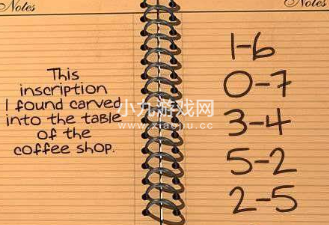 Notes
Notes
This
inscription
I found carved
into the table
of the
coffee shop.
1-6
0-7
3-4
5-2
2-5
小九游戏网